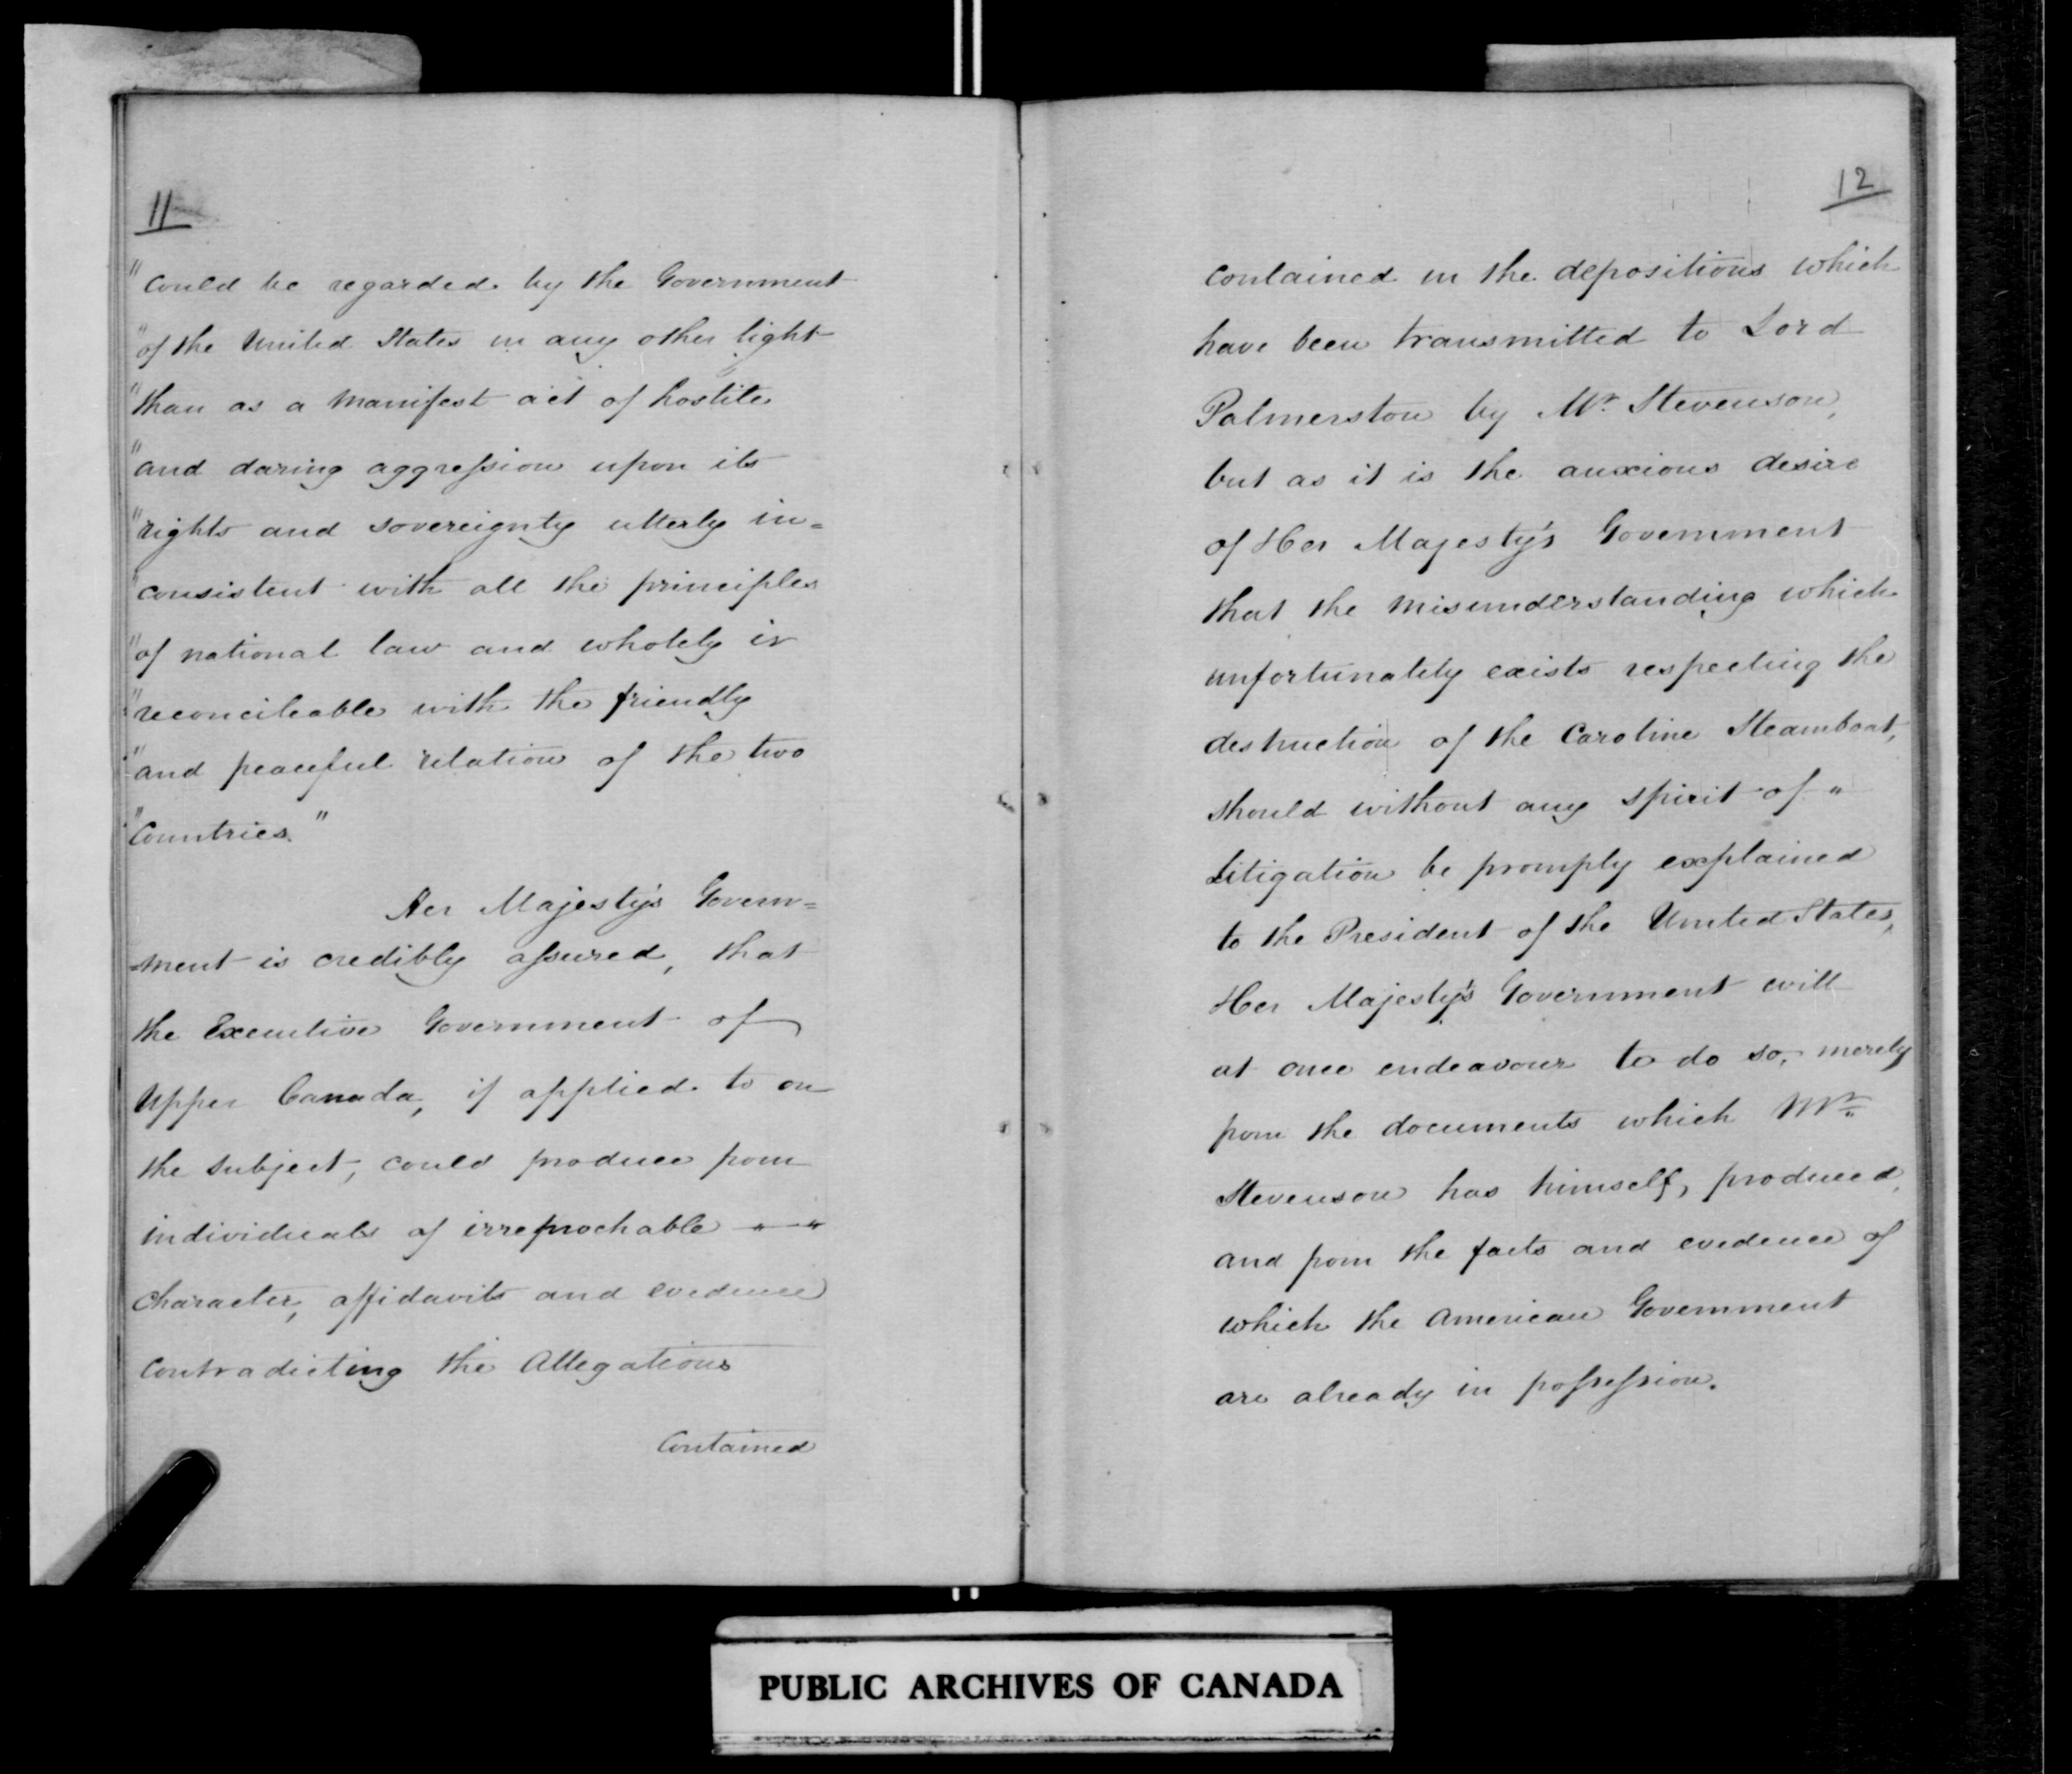 11
"could be regarded by the Government
"of the United States in any other light
"than as a manifest act of hostile
"and daring aggression upon its
"rights and sovereignty utterly in=
"consistent with all the principles
"of national law and wholely ir
"reconcileable with the friendly
"and peaceful relation of the two
"Countries."
Her Majesty's Govern=
=ment is credibly assured, that
the Executive Government of
Upper Canada, if applied to on
the subject, could produce from
individuals of irreprochable " — "
character, affidavits and evidence
contradicting the Allegations
Contained
12
contained in the depositions which
have been transmitted to Lord
Palmerston by Mr. Stevenson,
but as it is the anxious desire
of Her Majesty's Government
that the misunderstanding which
unfortunately exists respecting the
destruction of the Caroline Steamboat,
should without any spirit of "
Litigation be promply explained
to the President of the United States,
Her Majesty's Government will
at once endeavour to do so, merely
from the documents which Mr.
Stevenson has himself, produced,
and from the facts and evidence of
which the American Government
are already in possession.
PUBLIC ARCHIVES OF CANADA